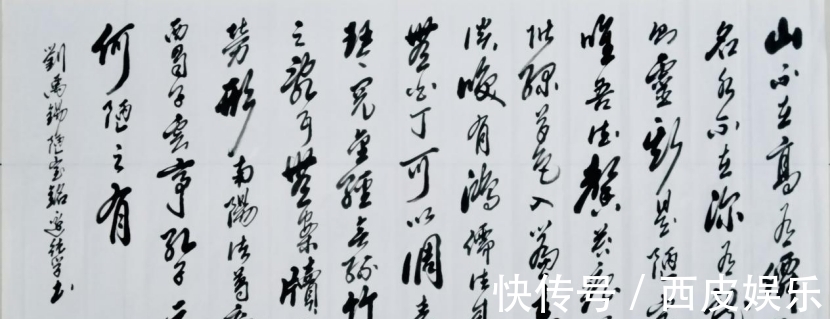 山不在高有僊
名水不在深有
則靈斯是陋室
唯吾德馨苔痕
階綠草色入簾
談咲有鴻儒往
無白丁可以調素
琴閱金經無絲竹
之亂耳無案牘
勞形南陽諸葛廬
西蜀子雲亭孔子云
何陋之有
劉禹錫陋室銘 書
快传号 / 西皮娱乐